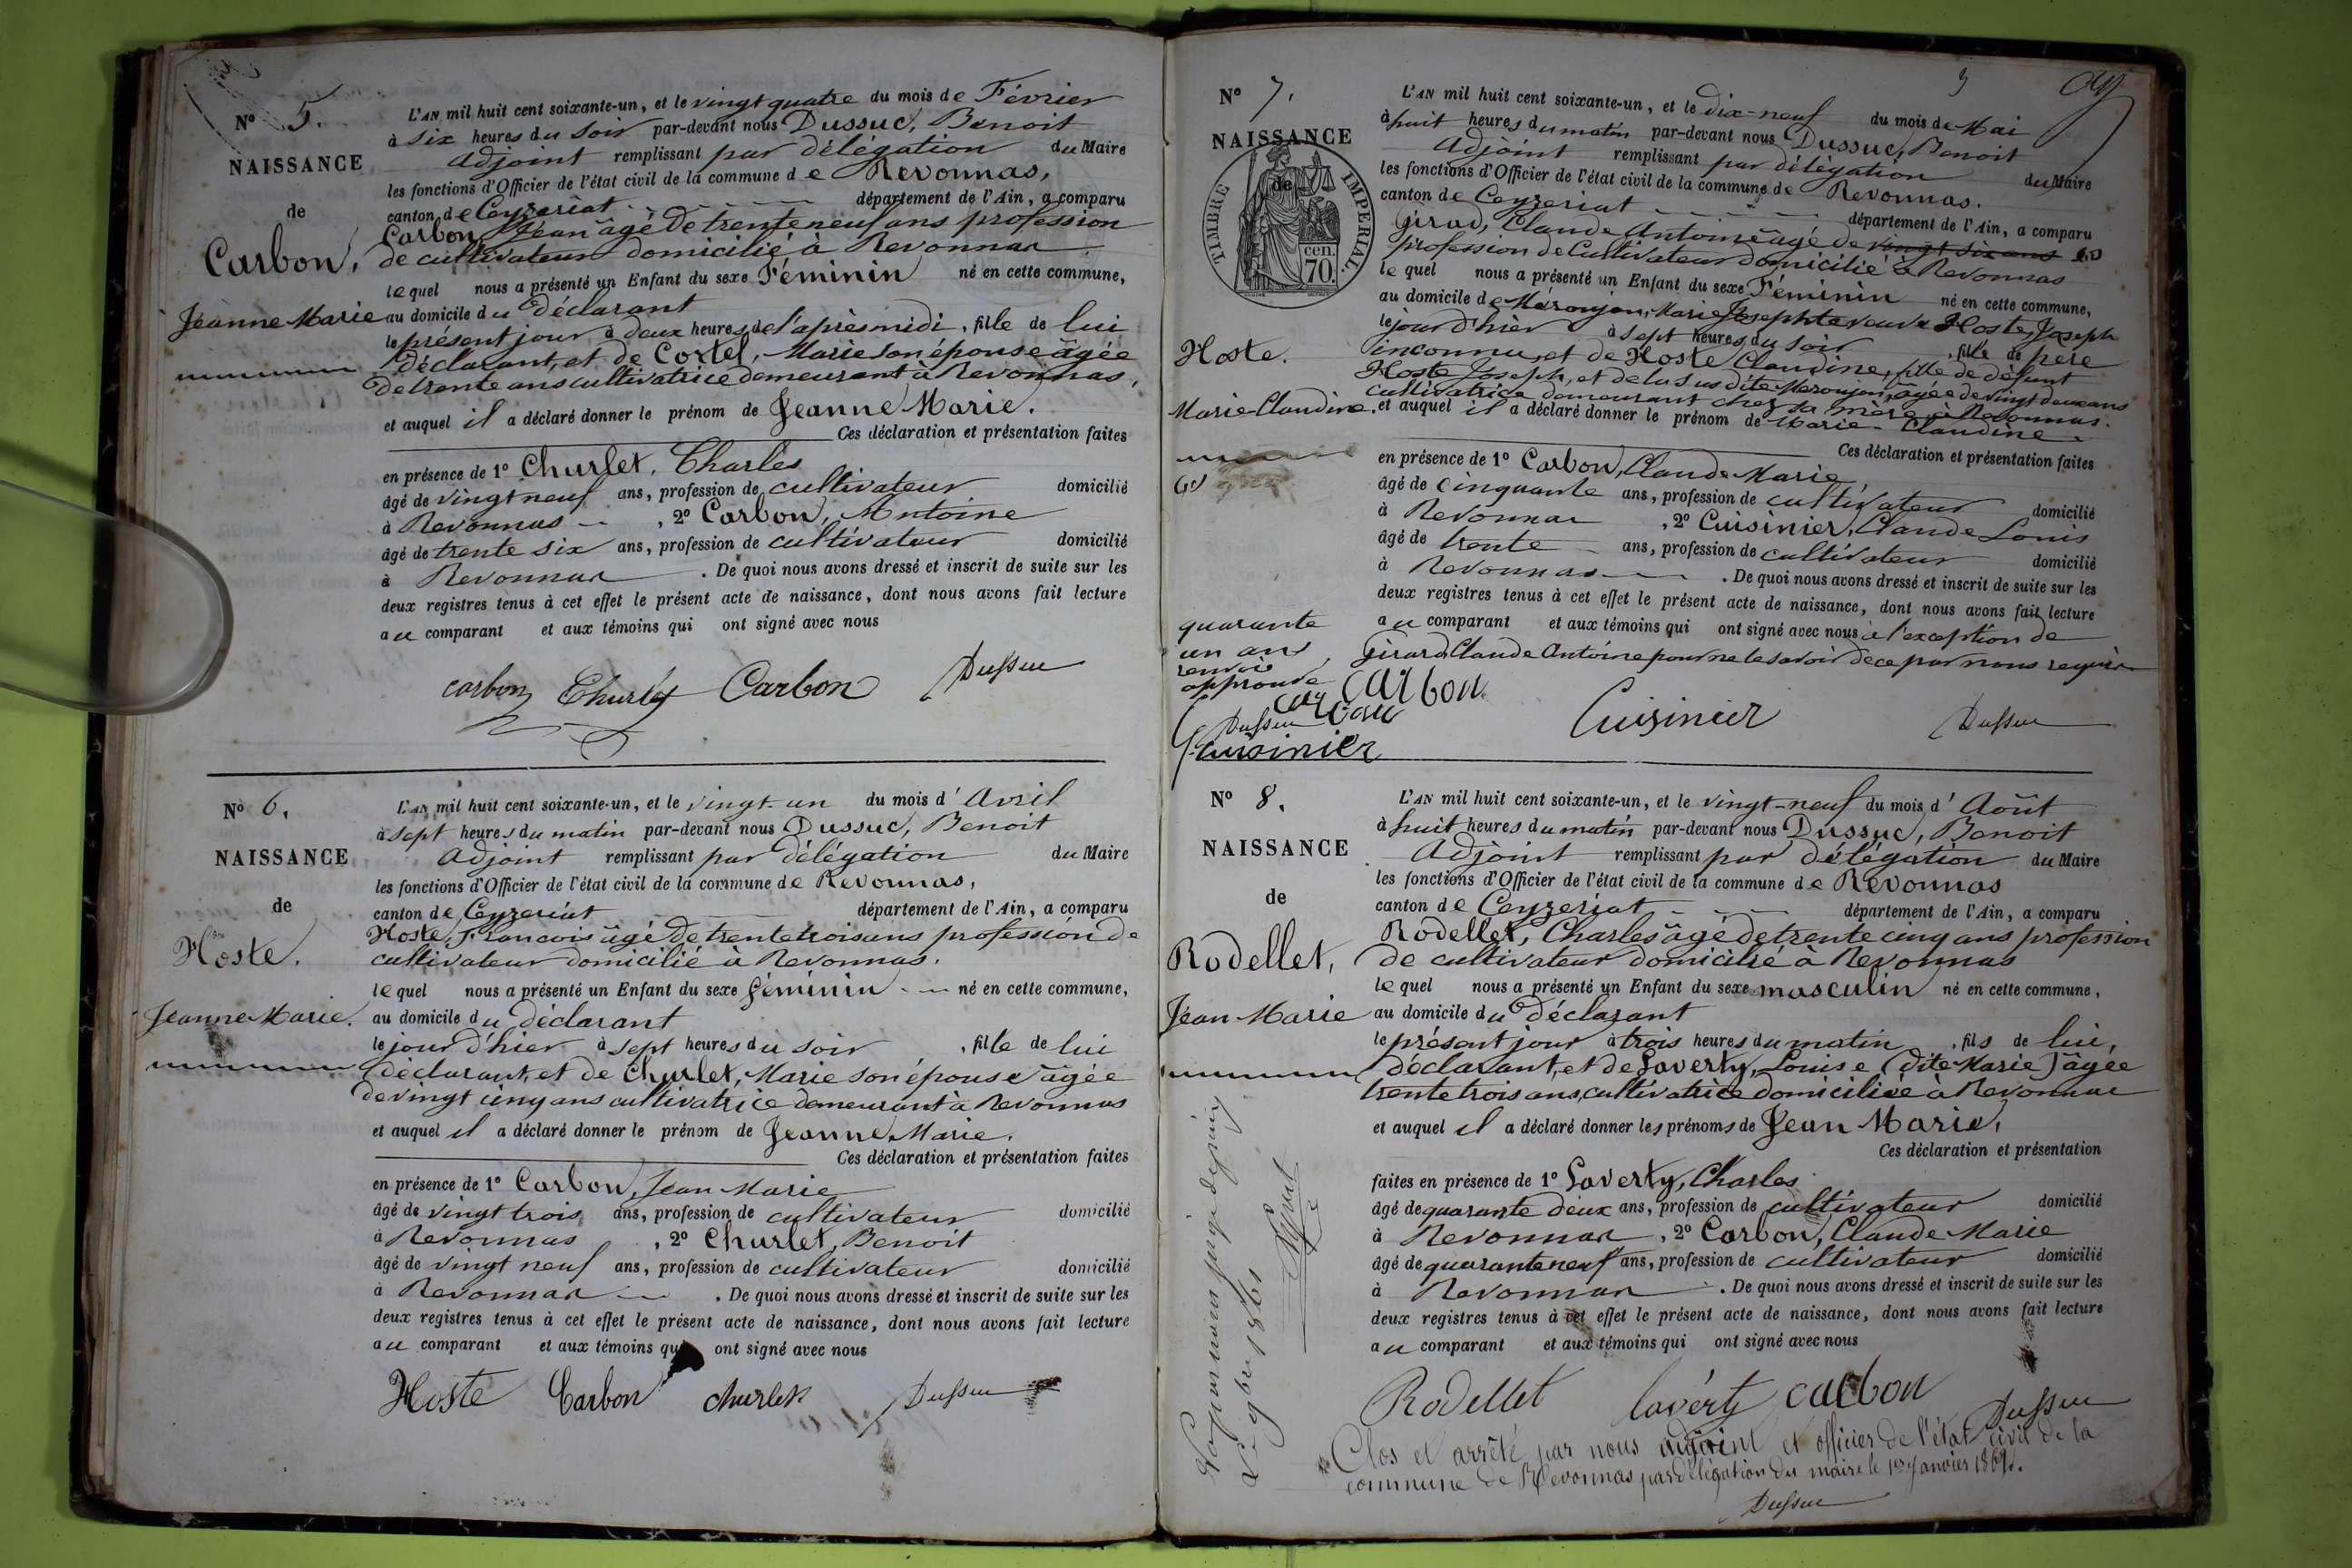 N° 5.
NAISSANCE
de
Carbon,
Jeanne Marie
L'AN mil huit cent soixante-un, et le vingt quatre du mois de Février
à six heures du soir par-devant nous Dussuc, Benoit
adjoint remplissant par délégation du Maire
les fonctions d'Officier de l'état civil de la commune de Revonnas,
canton de Ceyzeriat département de l'Ain, a comparu
Carbon, Jean âgé de trente neuf ans profession
de cultivateur domicilié à Revonnas
lequel nous a présenté un Enfant du sexe Féminin né en cette commune,
au domicile du déclarant
le présent jour à deux heures de l'après midi, fille de lui
déclarant, et de Cortel, Marie son épouse âgée
de trente ans cultivatrice demeurant à Revonnas,
et auquel il a déclaré donner le prénom de Jeanne Marie.
Ces déclaration et présentation faites
en présence de 1° Churlet, Charles
âgé de vingt neuf ans, profession de cultivateur domicilié
à Revonnas, 2° Carbon, Antoine
âgé de trente six ans, profession de cultivateur domicilié
à Revonnas. De quoi nous avons dressé et inscrit de suite sur les
deux registres tenus à cet effet le présent acte de naissance, dont nous avons fait lecture
au comparant et aux témoins qui ont signé avec nous
carbon Churlet Carbon Dussuc
N° 6.
NAISSANCE
de
Hoste.
Jeanne Marie.
L'AN mil huit cent soixante-un, et le vingt-un du mois d'Avril
à sept heures du matin par-devant nous Dussuc, Benoit
adjoint remplissant par délégation du Maire
les fonctions d'Officier de l'état civil de la commune de Revonnas,
canton de Ceyzeriat département de l'Ain, a comparu
Hoste, Francois âgé de trente trois ans profession de
cultivateur domicilié à Revonnas.
lequel nous a présenté un Enfant du sexe féminin né en cette commune,
au domicile du déclarant
le jour d'hier à sept heures du soir, fille de lui
déclarant, et de Churlet, Marie son épouse âgée
de vingt cinq ans cultivatrice demeurant à Revonnas
et auquel il a déclaré donner le prénom de Jeanne Marie.
Ces déclaration et présentation faites
en présence de 1° Carbon, Jean Marie
âgé de vingt trois ans, profession de cultivateur domicilié
à Revonnas, 2° Churlet, Benoit
âgé de vingt neuf ans, profession de cultivateur domicilié
à Revonnas. De quoi nous avons dressé et inscrit de suite sur les
deux registres tenus à cet effet le présent acte de naissance, dont nous avons fait lecture
au comparant et aux témoins qui ont signé avec nous
Hoste Carbon churlet Dussuc
3
N° 7.
NAISSANCE
de
TIMBRE IMPERIAL.
70 cen.
Hoste.
Marie Claudine.
L'AN mil huit cent soixante-un, et le dix-neuf du mois de Mai
à huit heures du matin par-devant nous Dussuc, Benoit
adjoint remplissant par délégation du Maire
les fonctions d'Officier de l'état civil de la commune de Revonnas.
canton de Ceyzeriat département de l'Ain, a comparu
Girad, Claude Antoine âgé de vingt six ans
profession de Cultivateur domicilié à Revonnas
lequel nous a présenté un Enfant du sexe Féminin né en cette commune,
au domicile de Méronjon, Marie Josephte veuve Hoste, Joseph
le jour d'hier à sept heures du soir, fille de père
inconnu, et de Hoste Claudine, fille de défunt
Hoste Joseph, et de la susdite Méronjon, âgée de vingt deux ans
cultivatrice demeurant chez sa mère à Revonnas.
et auquel il a déclaré donner le prénom de Marie-Claudine.
Ces déclaration et présentation faites
en présence de 1° Carbon, Claude Marie
âgé de cinquante ans, profession de cultivateur domicilié
à Revonnas, 2° Cuisinier, Claude Louis
âgé de trente ans, profession de cultivateur domicilié
à Revonnas. De quoi nous avons dressé et inscrit de suite sur les
deux registres tenus à cet effet le présent acte de naissance, dont nous avons fait lecture
au comparant et aux témoins qui ont signé avec nous à l'exception de
Girard Claude Antoine pour ne le savoir de ce par nous requis
quarante
un ans
renvoi
approuvé
Dussuc carbon
Cuisinier
carbon Cuisinier Dussuc
N° 8.
NAISSANCE
de
Rodellet,
Jean Marie
L'AN mil huit cent soixante-un, et le vingt-neuf du mois d'Août
à huit heures du matin par-devant nous Dussuc, Benoit
adjoint remplissant par délégation du Maire
les fonctions d'Officier de l'état civil de la commune de Revonnas
canton de Ceyzeriat département de l'Ain, a comparu
Rodellet, Charles âgé de trente cinq ans profession
de cultivateur domicilié à Revonnas
lequel nous a présenté un Enfant du sexe masculin né en cette commune,
au domicile du déclarant
le présent jour à trois heures du matin, fils de lui,
déclarant, et de Laverty, Louise (dite Marie) âgée
trente trois ans, cultivatrice domiciliée à Revonnas
et auquel il a déclaré donner les prénoms de Jean Marie,
Ces déclaration et présentation
faites en présence de 1° Laverty, Charles
âgé de quarante deux ans, profession de cultivateur domicilié
à Revonnas, 2° Carbon, Claude Marie
âgé de quarante neuf ans, profession de cultivateur domicilié
à Revonnas. De quoi nous avons dressé et inscrit de suite sur les
deux registres tenus à cet effet le présent acte de naissance, dont nous avons fait lecture
au comparant et aux témoins qui ont signé avec nous
Rodellet lavérty carbon Dussuc
Clos et arrêté par nous adjoint et officier de l'état civil de la
commune de Revonnas par délégation du maire le 1er Janvier 1862.
Dussuc
Vu par nous juge de paix
Le 9bre 1861